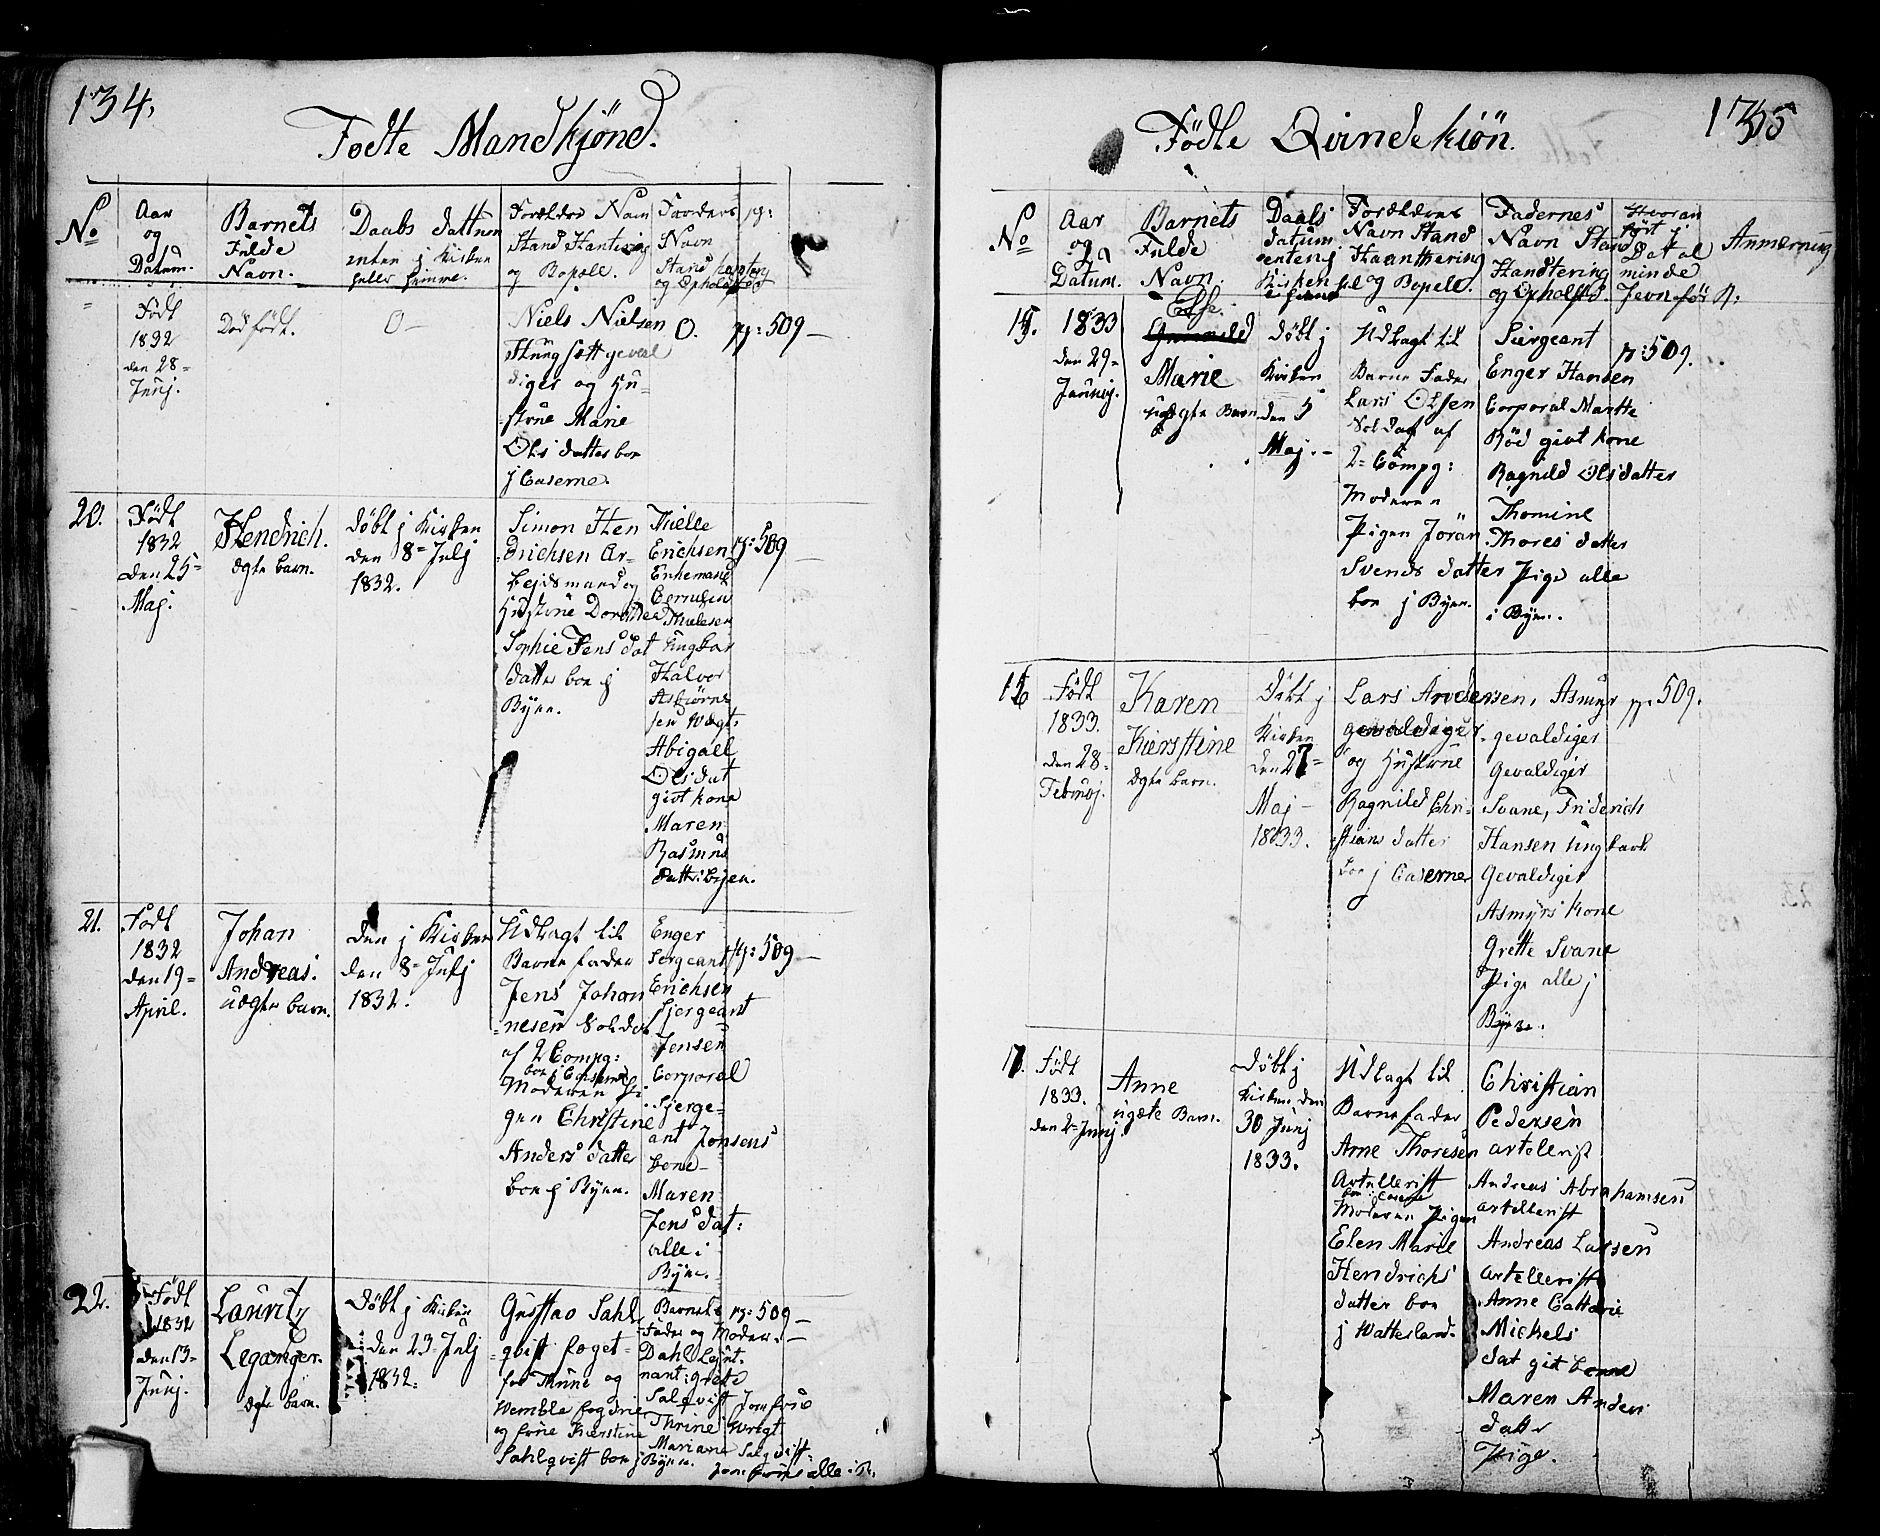 134.
Fødte Mandkjønd.
No
Aar
og
Datum.
Barnets
Fulde
Navn.
Daabs Dattum
enten j Kirken
heller hiemme.
Forældre Navn
Stand Hantering
og Bopæle.
Favders
Navn
Stand hantering
og Opholsted
pg:
Født
1832
den 28-
Junj.
Død født.
0-
Niels Nielsen
Slüng sætt geval
diger og Hu-
strue Marie
Ols datter boe
j Caserne.
0.
pg: 509-
20.
Født
1832
den 25-
Maj.
Hendrich.
ægte barn.
døbt j Kirken
den 8- Julj
1832.
Simon Hen
drichsen Ar-
bejdsmand og
Hustrue Dorothea
Sophie Jens dat
datter boe j
Byen.
Thielle
Erichsen
Enkemand
Cornelia
Thielesen
ungkar
Halvor
Asbiørn
sen Vægt:
Abigaell
Ols dat
givt kone
Maren
Rasmus
datt: i byen.
pg: 509-
21.
Født
1832
den 19-
April.
Johan
Andreas.
uægte barn.
den j Kirken
den 8- Julj
1832.
Udlagt til
Barne fader
Jens Johan
nesen Soldat
af 2 Compg:
boe j Caserne
Moderen Pi
gen Christine
Anders datter
boe j Byen.
Enger
Sergeant
Erichsen
Sjergeant
Jensen
Corporal
Sjerge-
ant Jonsens
kone
Maren
Jens dat:
alle i
Byen.
pg: 509-
22.
Født
1832
den 13-
Junj.
Lauritz
Leganger.
ægte barn.
Døbt j Kirken
den 23- Julj
1832.
Gustav Sahl
qvist foget
for Mune og
Wemble fogdrie
og frue Kierstine
Sahlqvist boe j Byen.
Barnets
Fader og Moder.
Dahl Lejut-
nant: grete
Salqvist Jomfrue
Thrine Wrigt
Mariane Salqvist
Jomfrue alle i B.
pg: 509-
135
Födte Qvindekiön.
No
Aar
og
Datum.
Barnets
Fulde
Navn.
Daabs
datum
enten j
Kirken el
Forældrenes
Navn Stand
Haanthering
og Bopæle.
Fadernes
Navn Stand
Handtering
og Opholsted.
Hvoran
ført j
Det al
minde
Jevn-før R:
Anmærning
15.
1833
den 29-
Januarj.
Else.
Marie
uægte Barn
døbt j
Kirken
den 5
Maj.-
Udlagt til
Barne Fader
Lars Olsen
Soldat af
2- Compg:
Moderen
Pigen Jöran
Svends datter
boe j Byen.
Siergeant
Enger Hansen
Corporal Mantte
Rød givt kone
Ragnild Olsdatter
Thomine
Thores datter
Pige alle
i Byen.
pg: 509.
16
Født
1833.
den 28-
Februarj.
Karen
Kierstine
ægte barn.
Døbt j
Kirken
den 27-
Maj-
1833.
Lars Andersen,
gevaldiger
og Hustrue
Ragnild Chri-
stians datter
boe j Caserne
Asmyr
gevaldiger
Gevaldiger
Svane, Friderich
Hansen ungkarl
Gevaldiger
Asmyrs kone
Grette Svane
Pige alle j
Byen.
pg. 509.
17.
Født
1833.
den 2- Junj.
Anne
uægte Barn.
Døbt j
Kirken den
30 Junj
1833.
Udlagt til
Barne fader
Arne Thoresen
Artellerist
boe i Caserne
Moderen Pigen
Elen Marie
Hendrichs
datter boe
j Watterland.
Christian
Pedersen
artellerist
Andreas Abrahamsen
artellerist
Andreas Larsen
artellerist
Anne Cattarie
Mickels
dat givt kone
Maren Anders
datter
Pige.